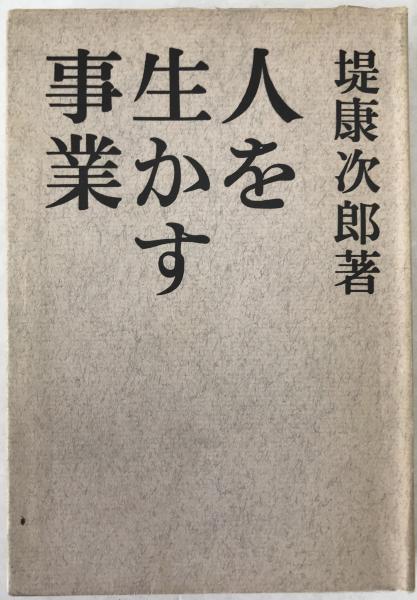 堤康次郎著
人を
生かす
事業